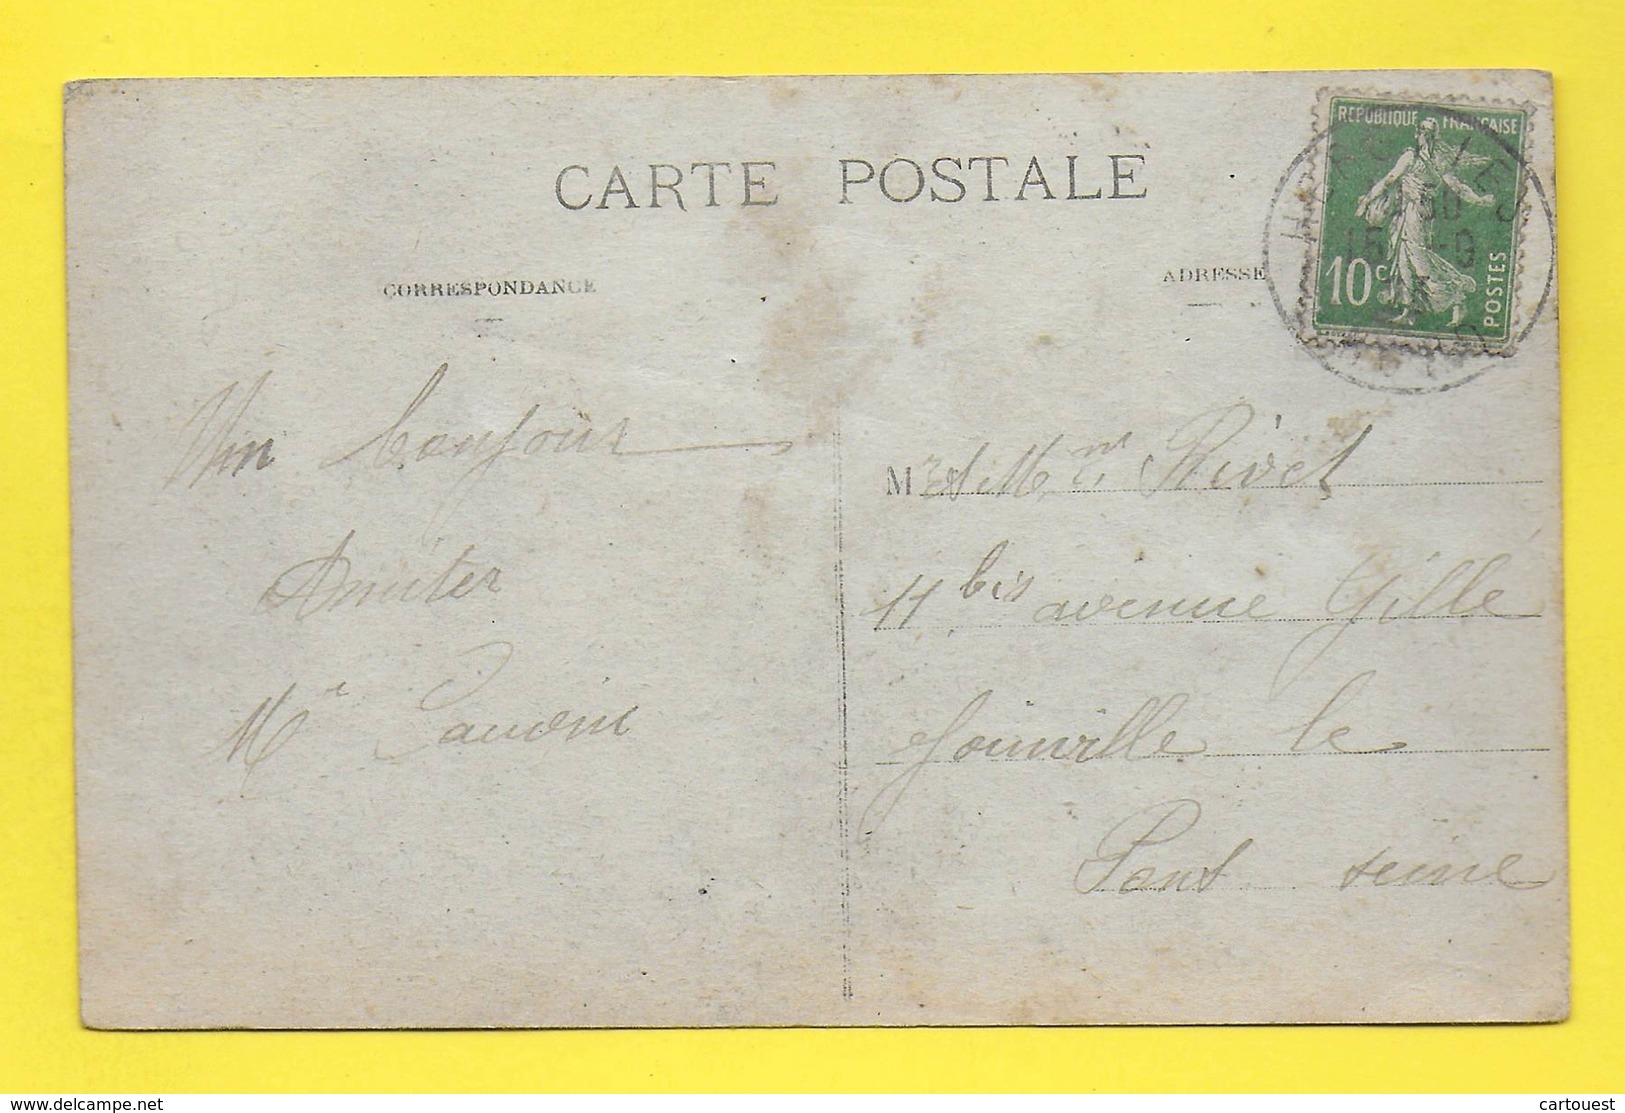 CARTE POSTALE
CORRESPONDANCE
ADRESSE
REPUBLIQUE FRANÇAISE
10c
POSTES
Un bonjour
Amiter
Mr
Mr et Mme Rivet
11 bis avenue Gille
Joinville le
Pont seine
www.delcampe.net
cartouest